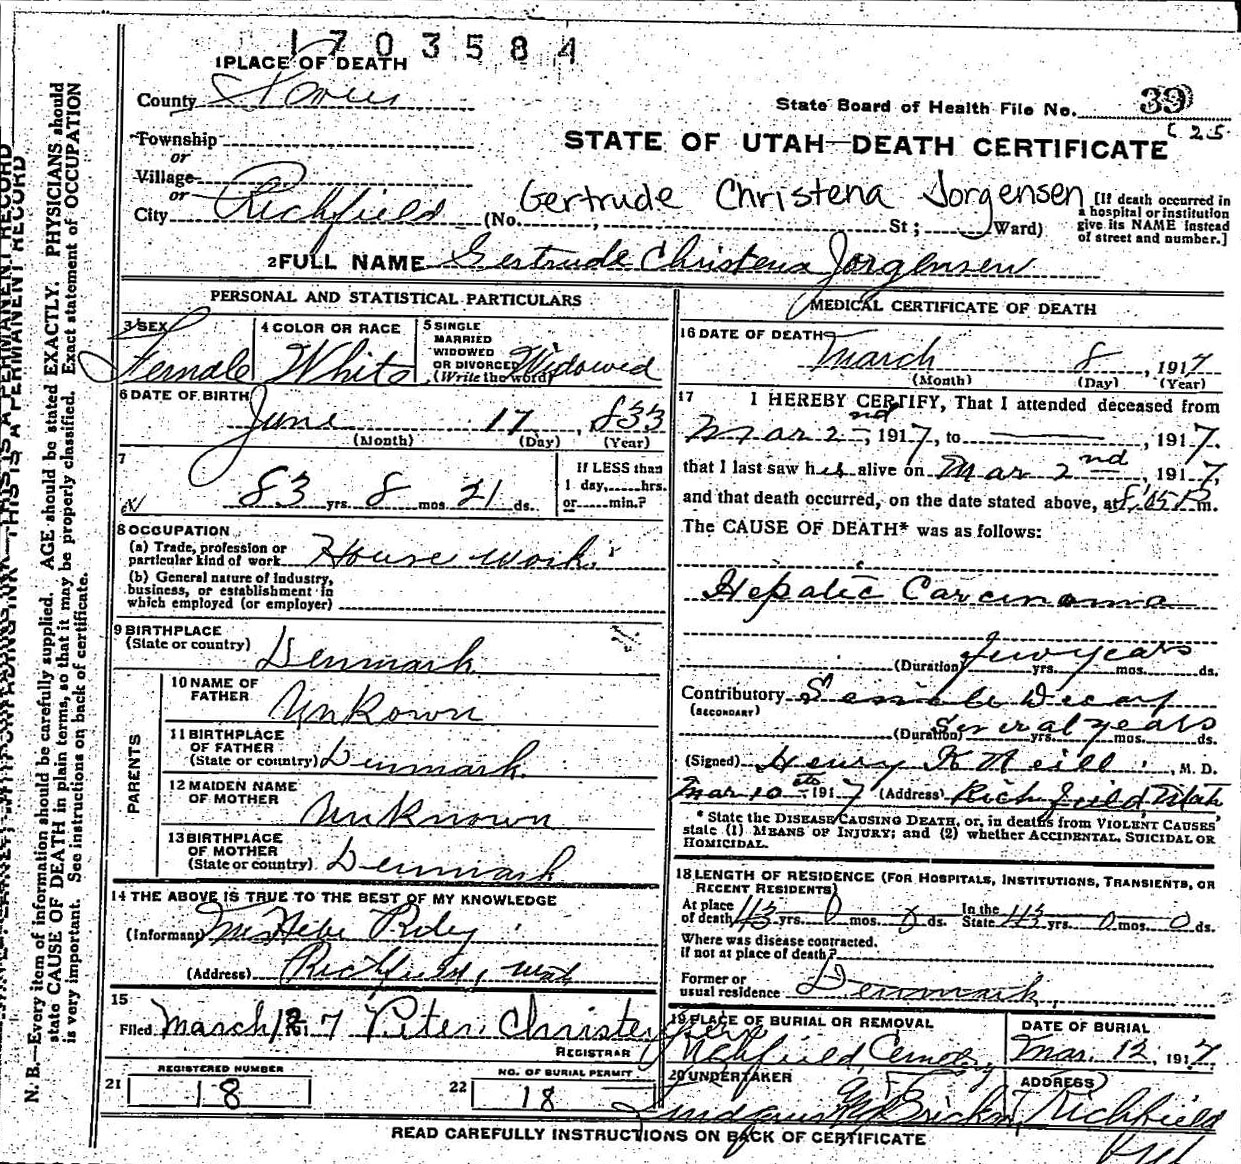 1703584
1 PLACE OF DEATH
County Sevier
State Board of Health File No. 39
C 25
Township
or
Village
or
City Richfield (No. St; Ward)
STATE OF UTAH—DEATH CERTIFICATE
Gertrude Christena Jorgensen
[If death occurred in
a hospital or institution
give its NAME instead
of street and number.]
2 FULL NAME Gertrude Christena Jorgensen
PERSONAL AND STATISTICAL PARTICULARS
3 SEX
Female
4 COLOR OR RACE
White
5 SINGLE
MARRIED
WIDOWED
OR DIVORCED
(Write the word)
Widowed
6 DATE OF BIRTH
June 17, 833
(Month) (Day) (Year)
7
83 yrs. 8 mos. 21 ds.
If LESS than
1 day, hrs.
or min.?
8 OCCUPATION
(a) Trade, profession or
particular kind of work House work.
(b) General nature of Industry,
business, or establishment in
which employed (or employer)
9 BIRTHPLACE
(State or country) Denmark
PARENTS
10 NAME OF
FATHER Unkown
11 BIRTHPLACE
OF FATHER
(State or country) Denmark.
12 MAIDEN NAME
OF MOTHER Unknown
13 BIRTHPLACE
OF MOTHER
(State or country) Denmark
14 THE ABOVE IS TRUE TO THE BEST OF MY KNOWLEDGE
(Informant)
(Address) Richfield, Utah
15
Filed March 12 1917 Peter Christensen
REGISTRAR
REGISTERED NUMBER
21 18
NO. OF BURIAL PERMIT
22 18
MEDICAL CERTIFICATE OF DEATH
16 DATE OF DEATH
March 8, 1917
(Month) (Day) (Year)
17 I HEREBY CERTIFY, That I attended deceased from
Mar 2nd, 1917, to ———, 1917.
that I last saw her alive on Mar 2nd, 1917,
and that death occurred, on the date stated above, at 8:05 P m.
The CAUSE OF DEATH* was as follows:
Hepatic Carcinoma
(Duration) few years yrs. mos. ds.
Contributory Senile Decay
(SECONDARY)
(Duration) Several years yrs. mos. ds.
(Signed) Henry K Neill, M. D.
Mar 10th 1917 (Address) Richfield, Utah
* State the DISEASE CAUSING DEATH, or, in deaths from VIOLENT CAUSES
state (1) MEANS OF INJURY; and (2) whether ACCIDENTAL, SUICIDAL OR
HOMICIDAL.
18 LENGTH OF RESIDENCE (FOR HOSPITALS, INSTITUTIONS, TRANSIENTS, OR
RECENT RESIDENTS)
At place
of death 43 yrs. 0 mos. 0 ds. In the
State 43 yrs. 0 mos. 0 ds.
Where was disease contracted.
if not at place of death?
Former or
usual residence Denmark,
19 PLACE OF BURIAL OR REMOVAL
Richfield Cemetery
DATE OF BURIAL
Mar. 12, 1917
20 UNDERTAKER
ADDRESS
Richfield
READ CAREFULLY INSTRUCTIONS ON BACK OF CERTIFICATE
N. B.—Every item of information should be carefully supplied. AGE should be stated EXACTLY. PHYSICIANS should
state CAUSE OF DEATH in plain terms, so that it may be properly classified. Exact statement of OCCUPATION
is very important. See instructions on back of certificate.
THIS IS A PERMANENT RECORD